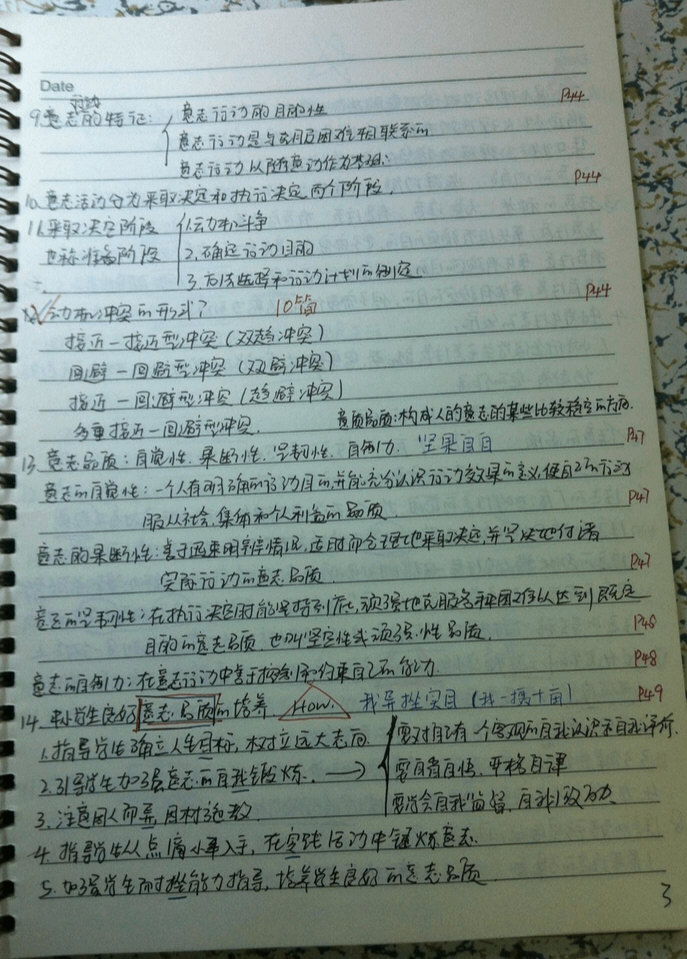 Date
行动
9.意志的特征: 意志行动的目的性 P44
意志行动是与克服困难相联系的
意志行动以随意动作为基础;
10.意志活动分为采取决定和执行决定两个阶段, P44
11.采取决定阶段 1.动机斗争
也称准备阶段 2.确定行动目的
3.方法选择和行动计划的制定
12.动机冲突的形式? 10 简 P44
接近一接近型冲突(双趋冲突)
回避一回避型冲突(双避冲突)
接近一回避型冲突(趋避冲突)
多重接近一回避型冲突. 意质品质:构成人的意志的某些比较稳定的方面.
13.意志品质:自觉性.果断性.坚韧性.自制力. 坚果自自 P47
意志的自觉性:一个人有明确的行动目的,并能充分认识行动效果的意义,使自己的行动
服从社会.集体和个人利益的品质. P47
意志的果断性:善于迅速明辨情况,适时而合理地采取决定,并坚决地付诸
实际行动的意志品质. P47
意志的坚韧性:在执行决定时能坚持到底,顽强地克服各种困难以达到既定
目的的意志品质.也叫坚定性或顽强性品质. P48
意志的自制力:在意志行动中善于控制约束自己的能力. P48
14.中小学生良好意志品质的培养. How. 我异挫实目(我一挫十面) P49
1.指导学生确立人生目标,树立远大志向. 要对自己有一个客观的自我认识和自我评价.
2.引导学生加强意志的自我锻炼. → 要自省自悟,严格自律
3.注意因人而异,因材施教. 要学会自我监督,自我激励.
4.指导学生从点滴小事入手,在实践活动中锻炼意志.
5.加强学生耐挫能力指导,培养学生良好的意志品质.
3